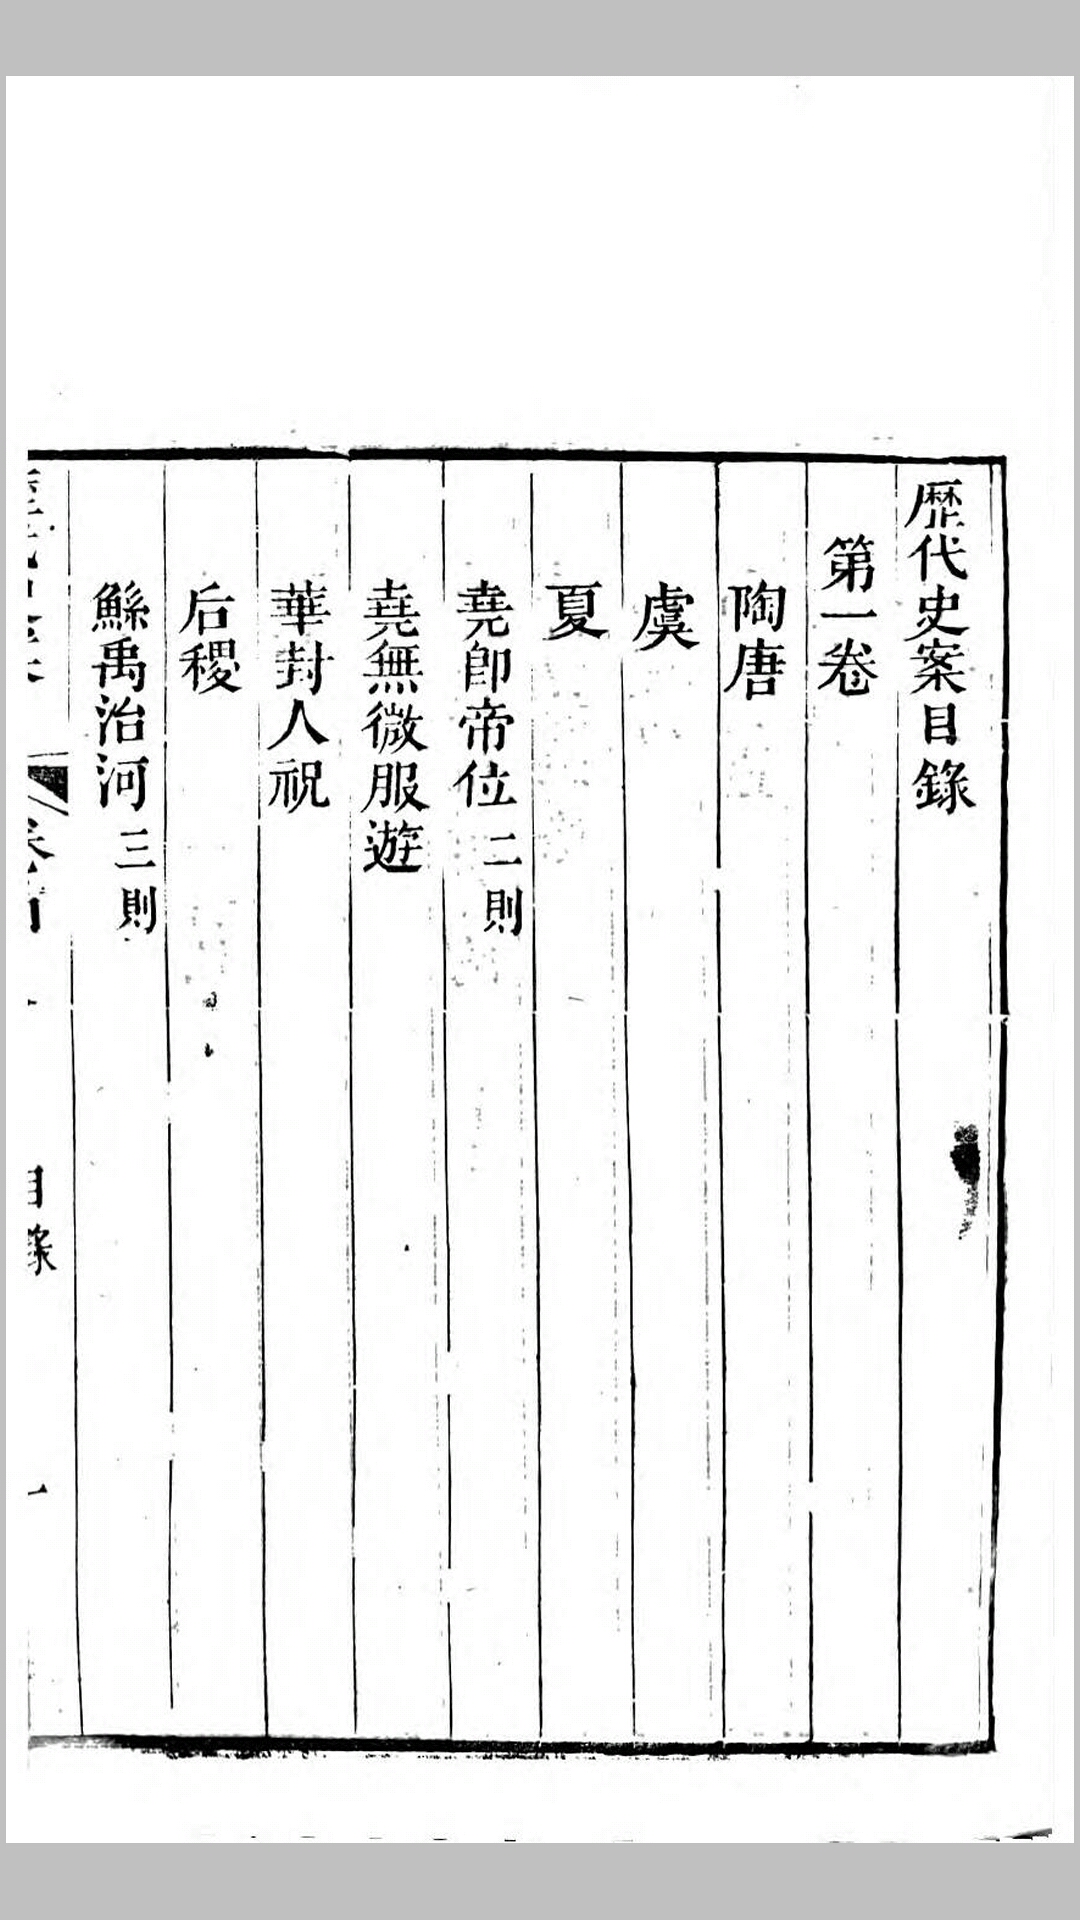 歷代史案目錄
第一卷
陶唐
虞
夏
堯卽帝位二則
堯無微服遊
華封人祝
后稷
鯀禹治河三則
目錄